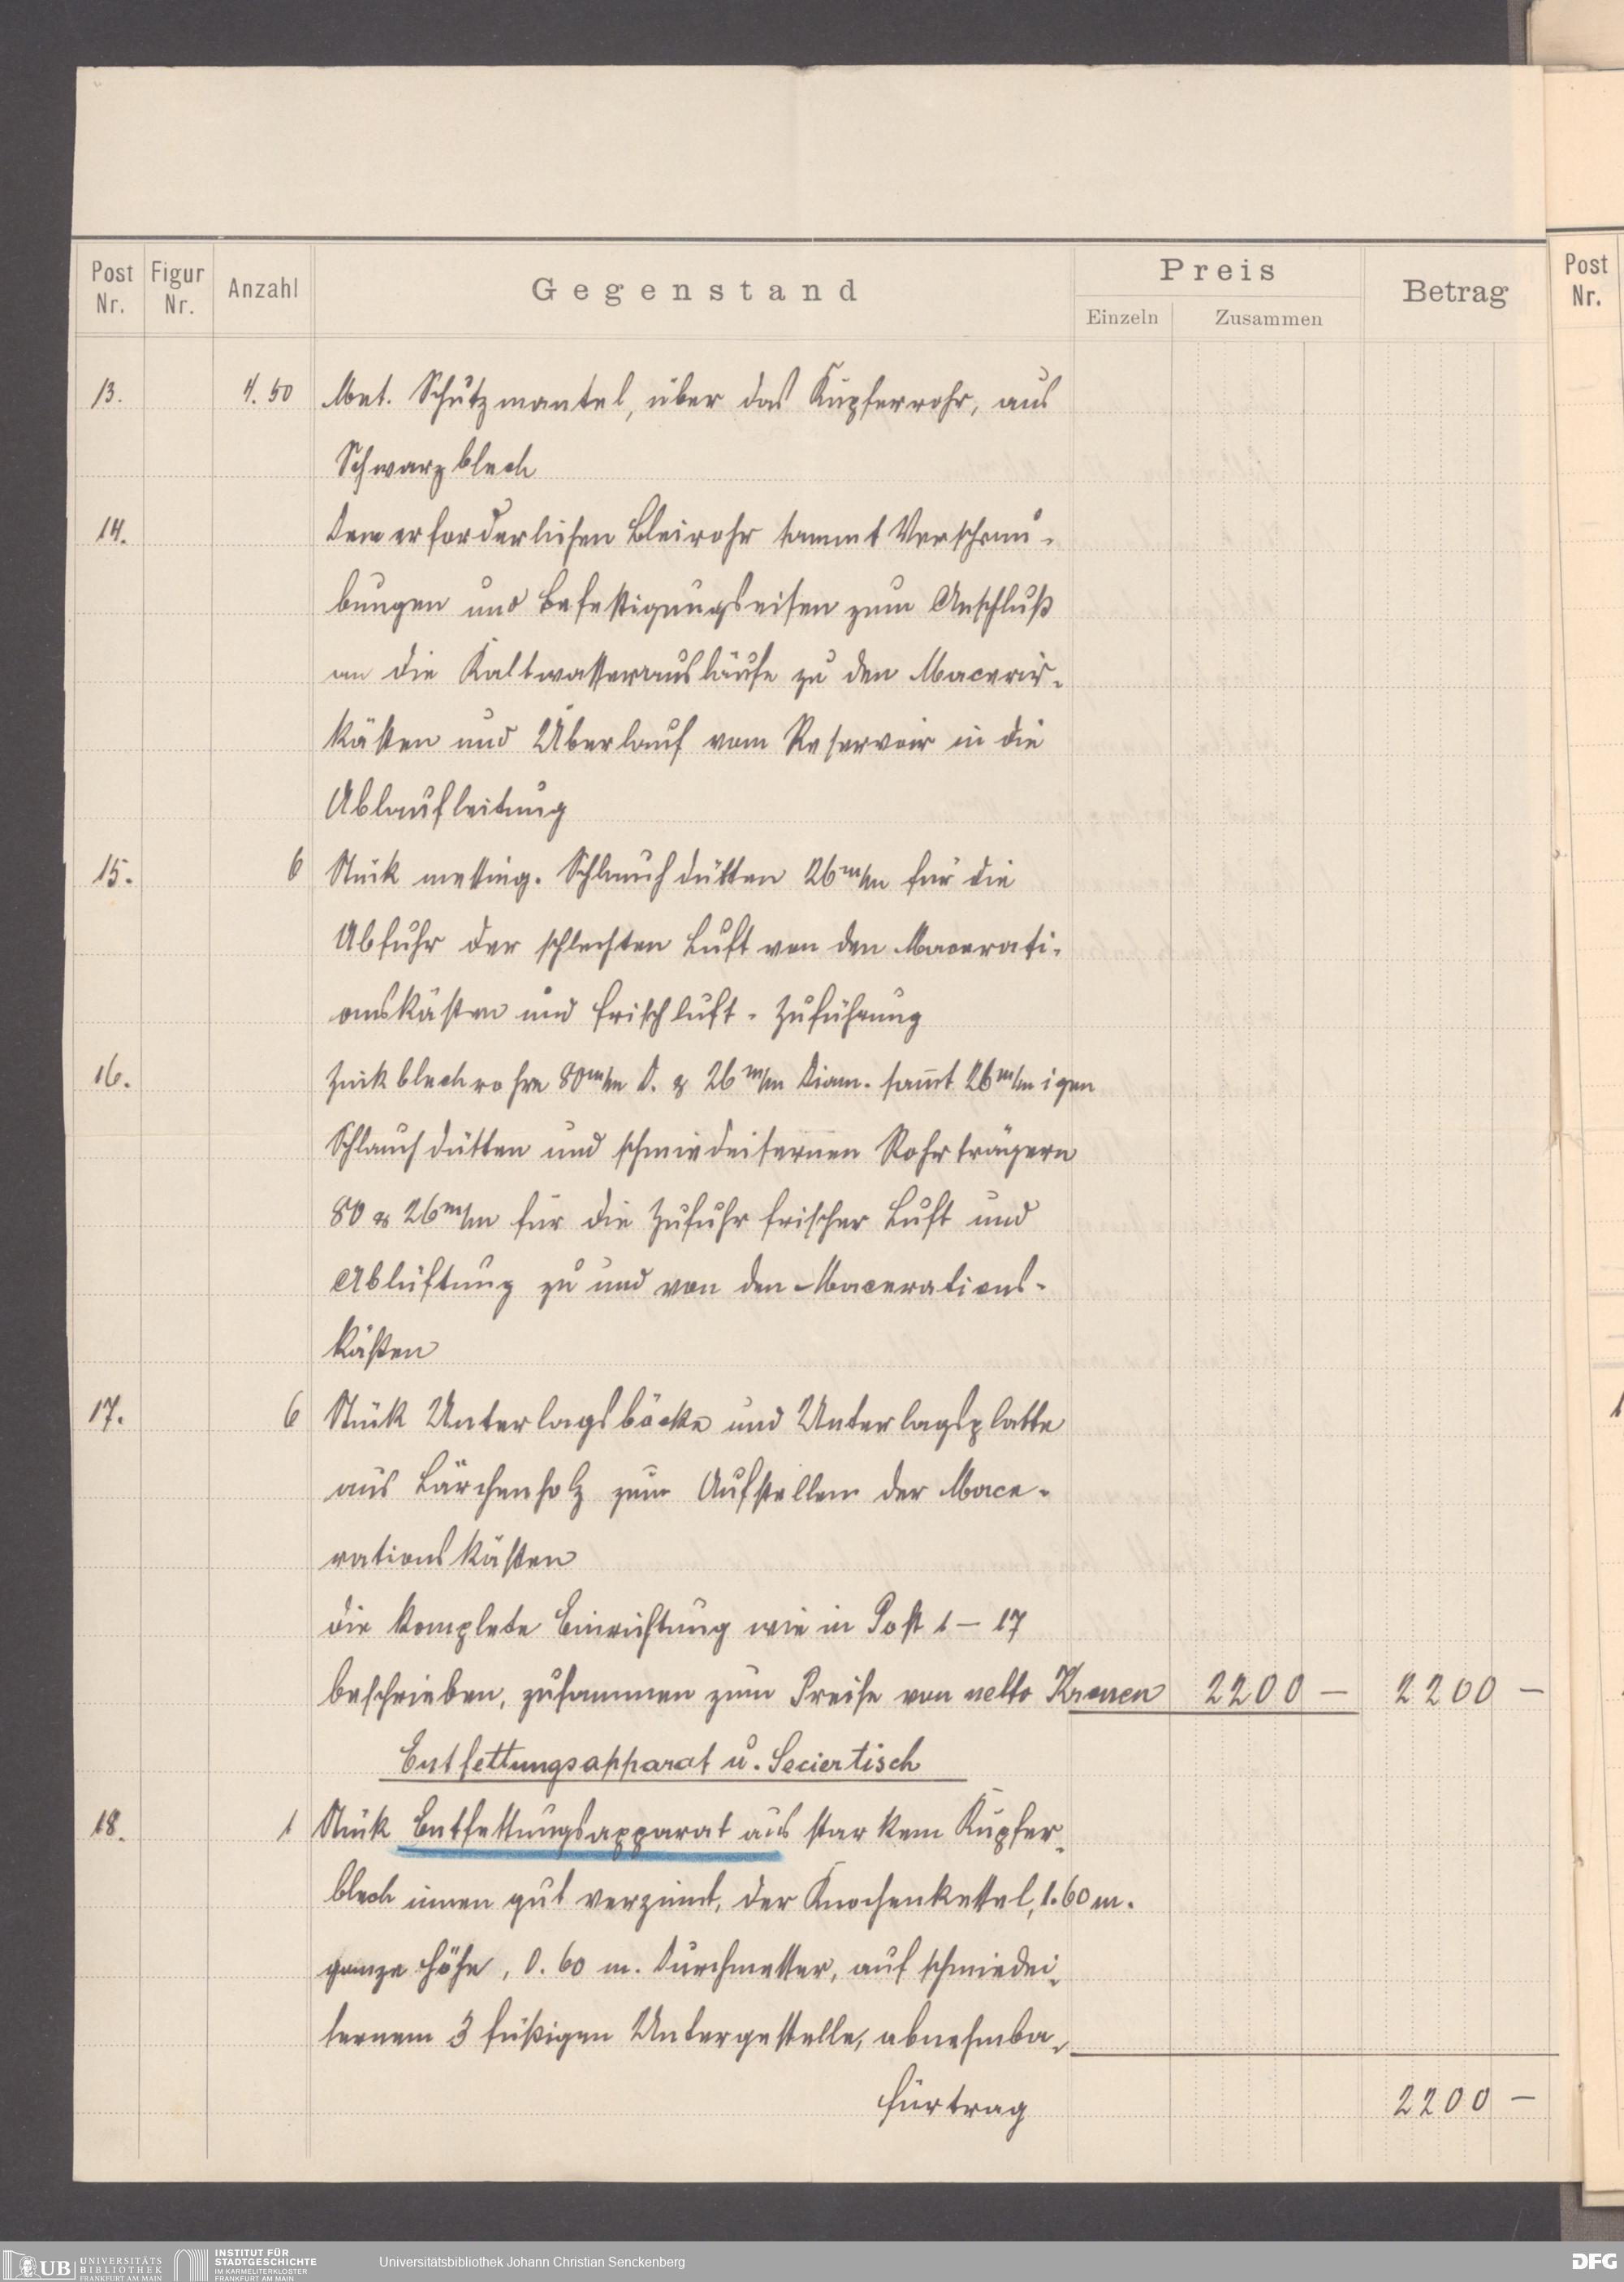 Post Nr. Figur Nr. Anzahl Gegenstand Preis Einzeln Zusammen Betrag Post Nr.
13. 4.50 Met. Schutzmantel, über das Kupferrohr, aus
Schwarzblech
14. Dem erforderlichen Bleirohr sammt Verschrau-
bungen und Befestigungseisen zum Anschluß
an die Kaltwasserausläufe zu den Macerir-
kästen und Überlauf vom Reservoir in die
Ablaufleitung
15. 6 Stück messing. Schlauchdütten 26 m/m für die
Abfuhr der schlechten Luft von den Macerati-
onskästen und Frischluft-Zuführung
16. Zinkblechrohre 80 m/m D. & 26 m/m Diam. samt 26 m/m igen
Schlauchdütten und schmiedeisernen Rohrträgern
80 & 26 m/m für die Zufuhr frischer Luft und
Ablüftung zu und von den Macerations-
kästen
17. 6 Stück Unterlagsböcke und Unterlagsplatte
aus Lärchenholz zum Aufstellen der Mace-
rationskästen
die komplete Einrichtung wie in Post 1 – 17
beschrieben, zusammen zum Preise von netto Kronen 2200 – 2200 –
Entfettungsapparat u. Seciertisch
18. 1 Stück Entfettungsapparat aus starkem Kupfer-
blech innen gut verzinnt, der Knochenkessel, 1.60 m.
ganze Höhe, 0.60 m. Durchmesser, auf schmiedei-
sernem 3 füßigen Untergestelle, abnehmba-
Fürtrag 2200 –
UB UNIVERSITÄTS
BIBLIOTHEK
FRANKFURT AM MAIN
INSTITUT FÜR
STADTGESCHICHTE
IM KARMELITERKLOSTER
FRANKFURT AM MAIN
Universitätsbibliothek Johann Christian Senckenberg
DFG